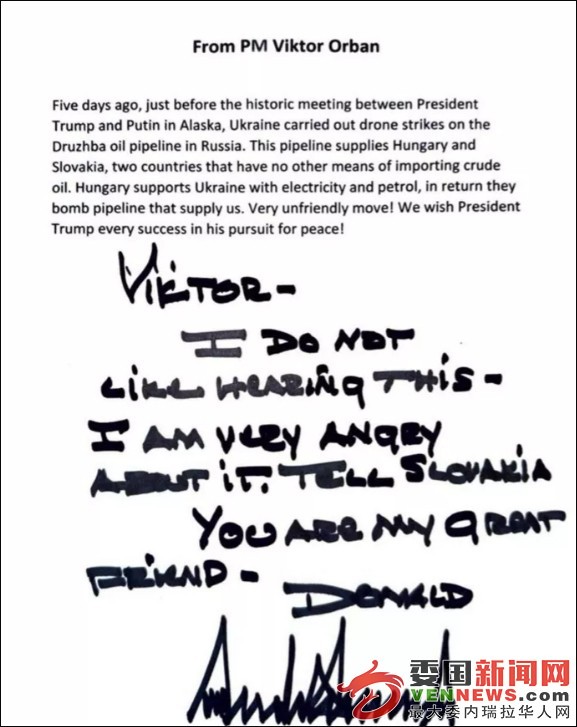 From PM Viktor Orban
Five days ago, just before the historic meeting between President
Trump and Putin in Alaska, Ukraine carried out drone strikes on the
Druzhba oil pipeline in Russia. This pipeline supplies Hungary and
Slovakia, two countries that have no other means of importing crude
oil. Hungary supports Ukraine with electricity and petrol, in return they
bomb pipeline that supply us. Very unfriendly move! We wish President
Trump every success in his pursuit for peace!
VIKTOR-
I DO NOT
LIKE HEARING THIS-
I AM VERY ANGRY
ABOUT IT. TELL SLOVAKIA
YOU ARE MY GREAT
FRIEND- DONALD
委国新闻网
VENNEWS.COM
最大委内瑞拉华人网